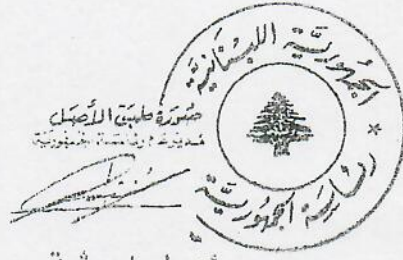 الجمهوريّة اللبنانيّة
رئاسة الجمهوريّة
صورة طبق الأصل
مديرعام رئاسة الجمهورية